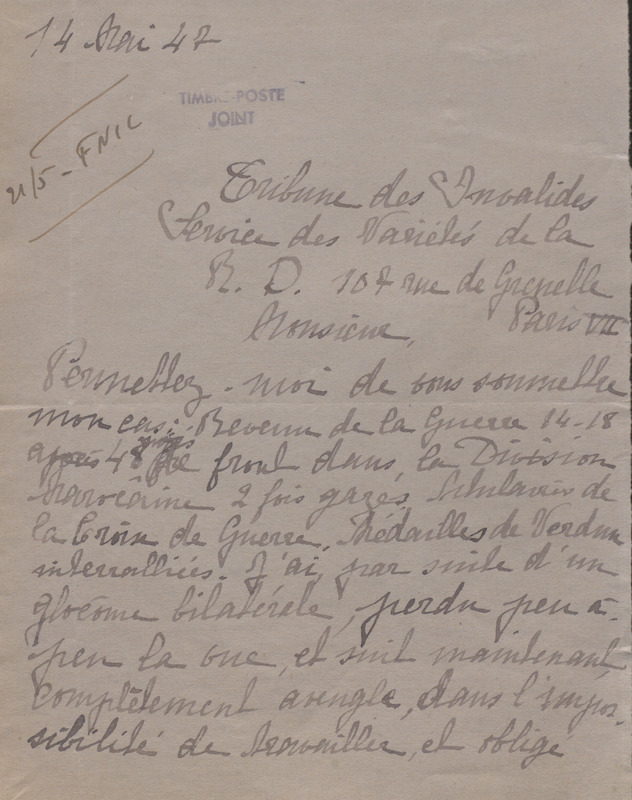 14 Mai 47
TIMBRE-POSTE
JOINT
21/5 - FNIC
Tribune des Invalides
Service des Variétés de la
R. D. 107 rue de Grenelle
Monsieur, Paris VII
Permettez-moi de vous soumettre
mon cas: Revenu de la Guerre 14-18
après 48 de front dans la Division
Marocaine 2 fois gazés, titulaire de
la Croix de Guerre, Médailles de Verdun
interralliées. J'ai, par suite d'un
glocôme bilatérale, perdu peu à
peu la vue, et suit maintenant,
complètement aveugle, dans l'impos-
sibilité de travailler, et obligé